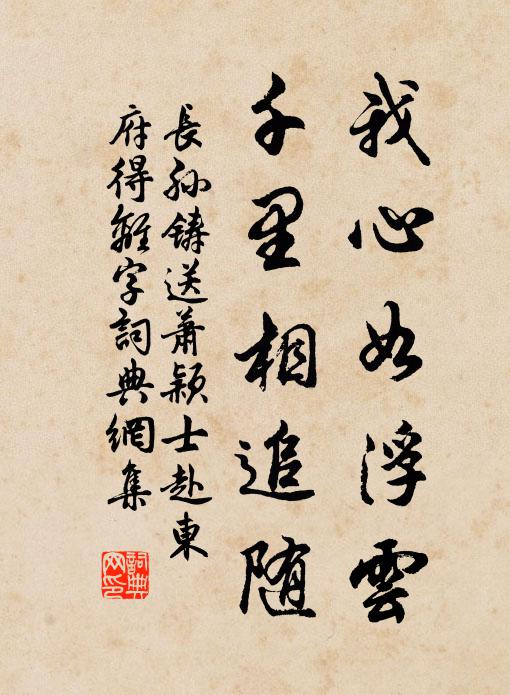 我心如浮雲
千里相追隨
長孙鑄送蕭颖士赴東
府得離字詞典網集
詞典
网印